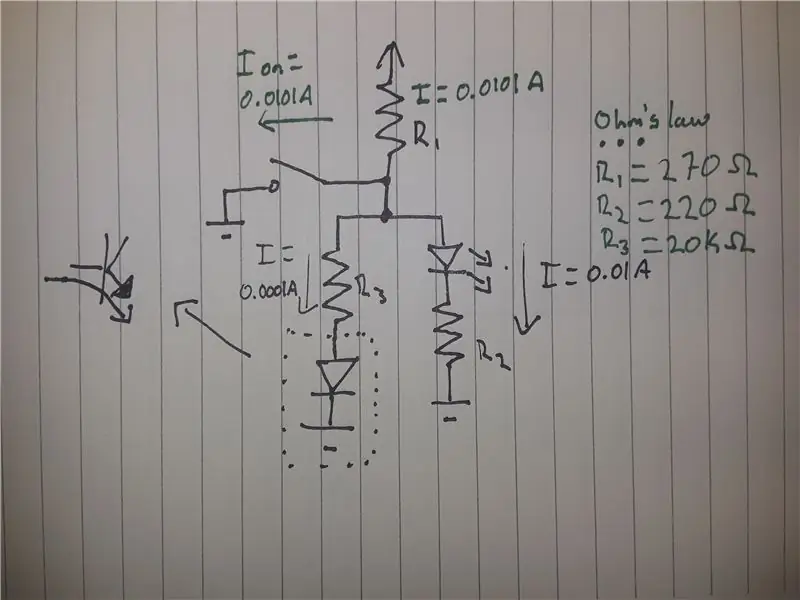 I on =
0.0101A
I = 0.0101 A
R1
Ohm's law
R1 = 270 Ω
R2 = 220 Ω
R3 = 20K Ω
I =
0.0001A
R3
I = 0.01 A
R2